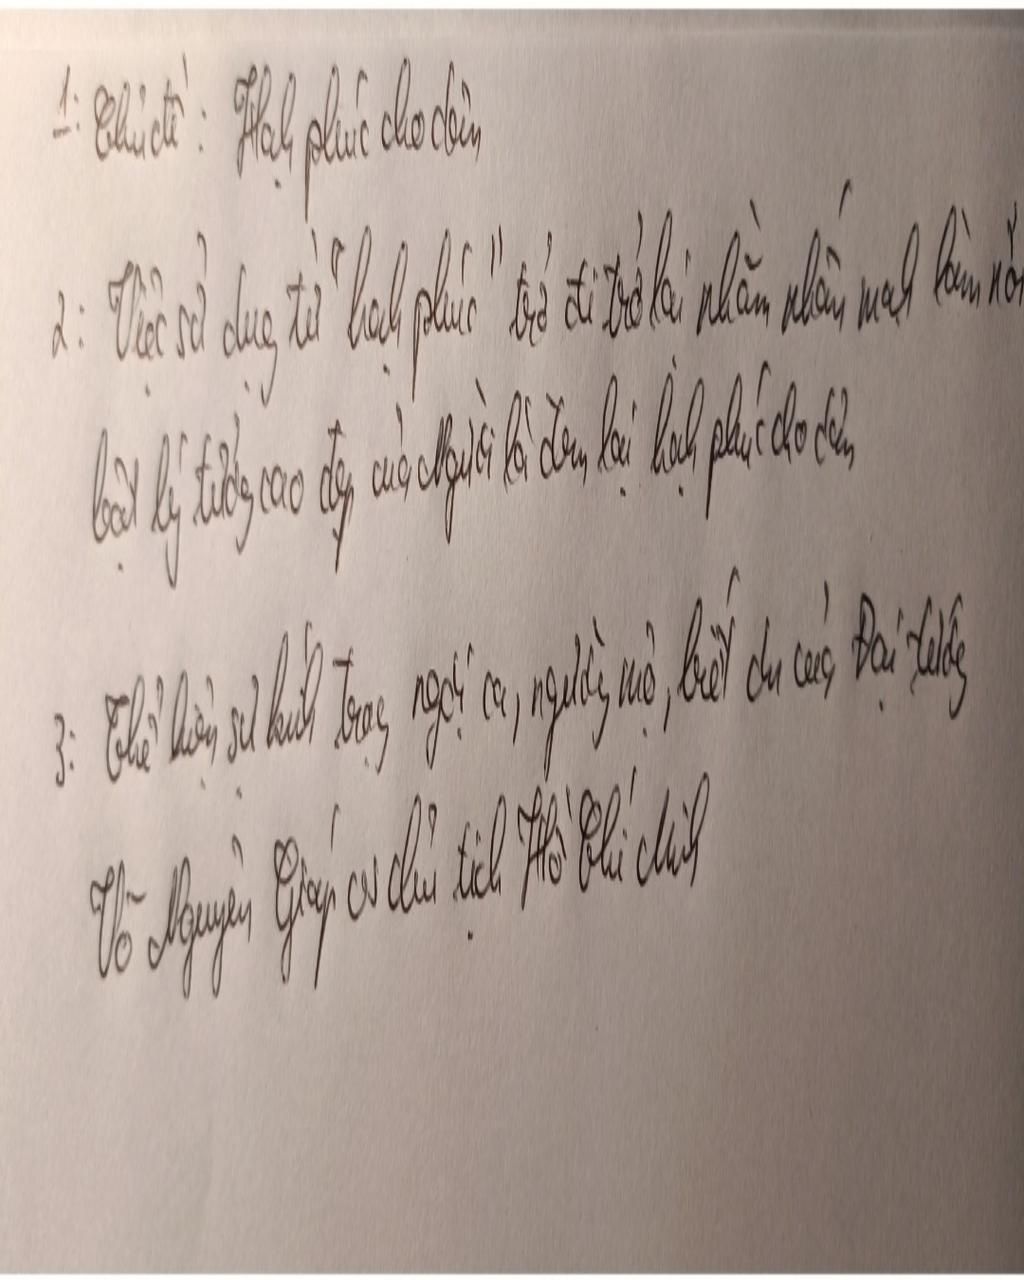 1: Chủ đề: Hạnh phúc cho dân
2: Việc sử dụng từ "hạnh phúc" trở đi trở lại nhằm nhấn mạnh làm nổi
bật lý tưởng cao đẹp của Người là đem lại hạnh phúc cho dân
3: Thể hiện sự kính trọng ngợi ca, ngưỡng mộ, biết ơn của Đại tướng
Võ Nguyên Giáp với chủ tịch Hồ Chí Minh